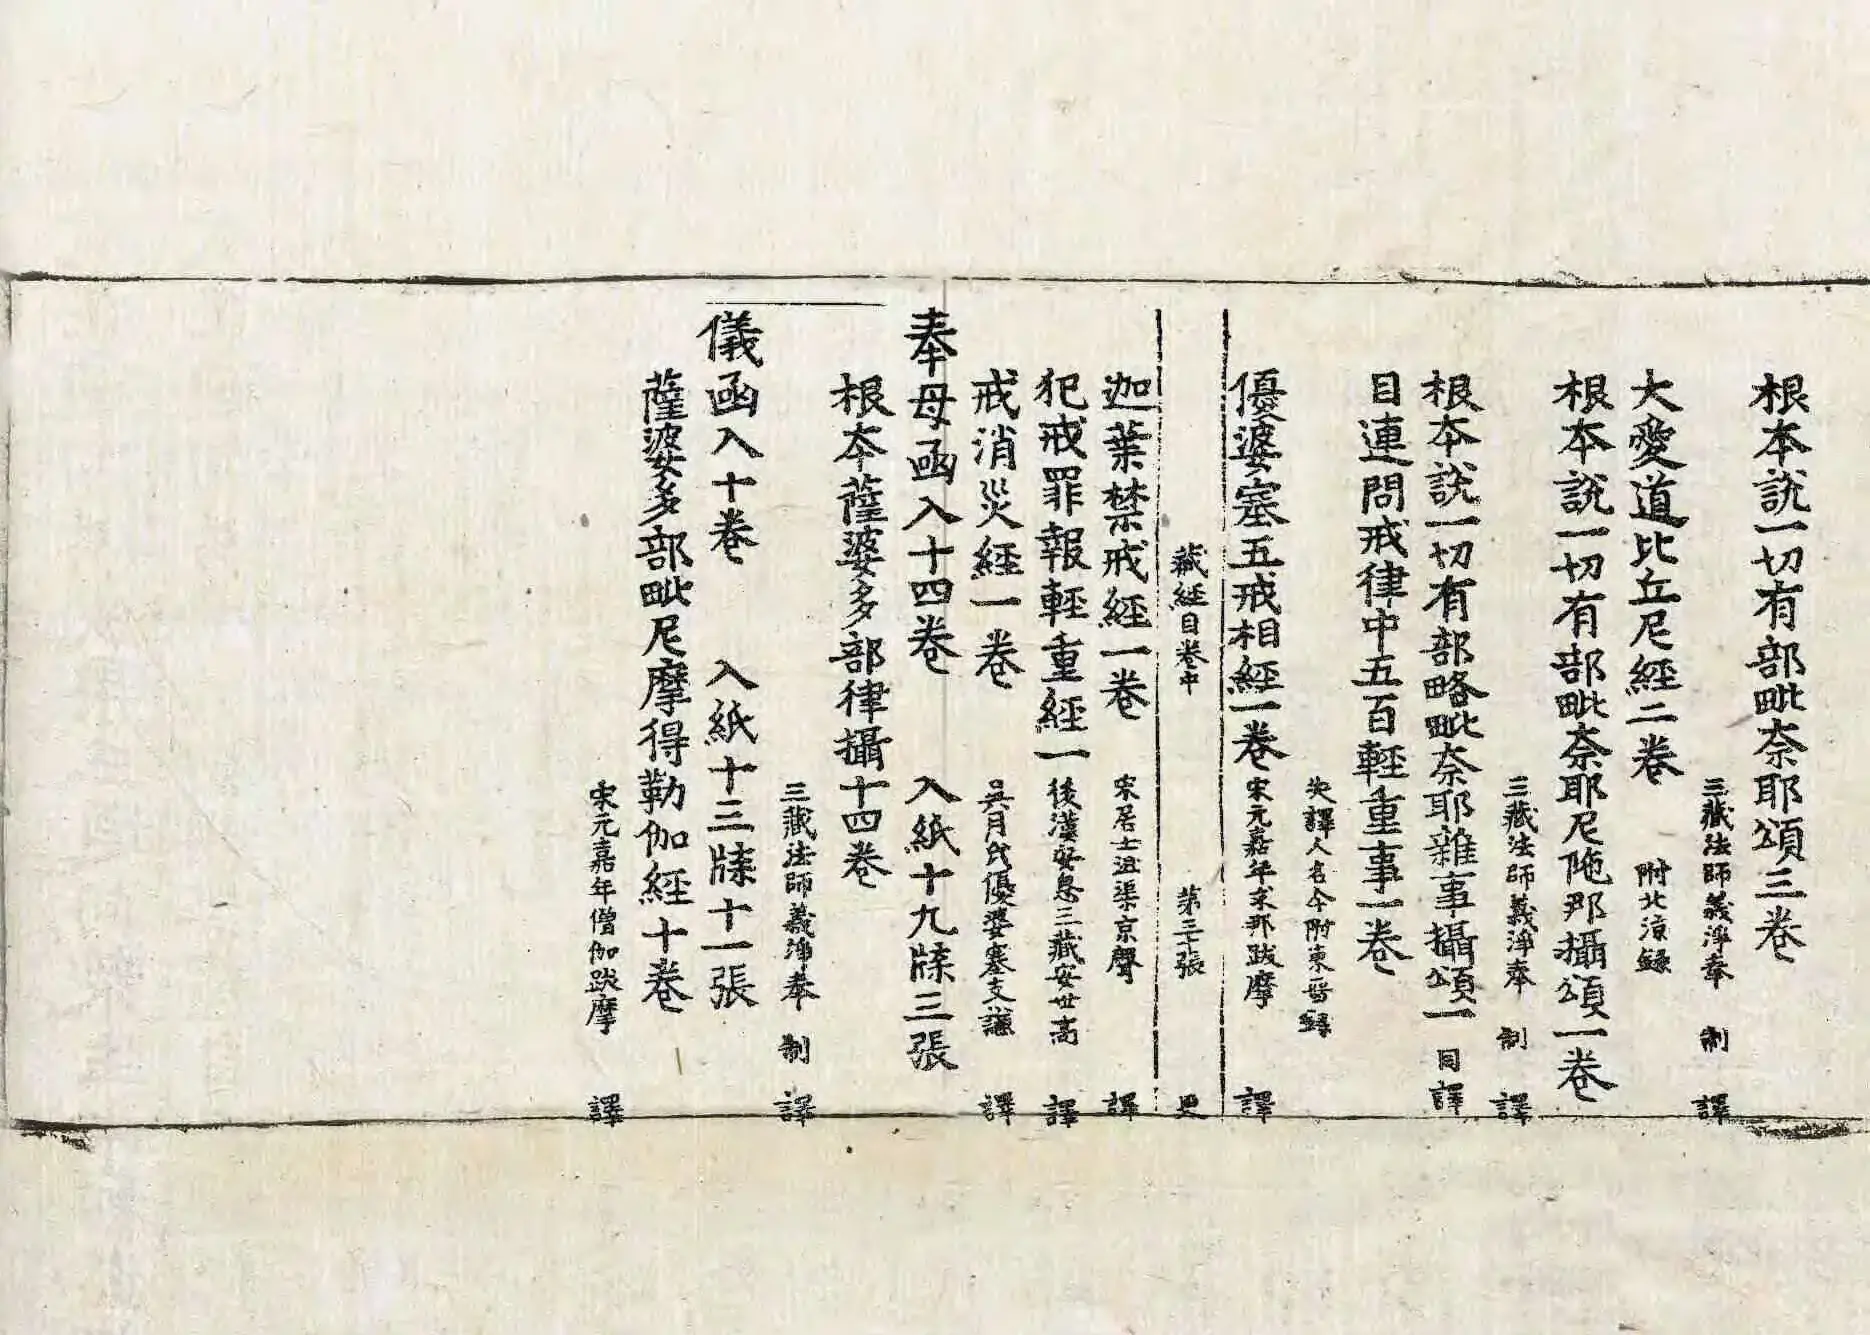 根本說一切有部毗奈耶頌三卷
三藏法師義淨奉 制 譯
大愛道比丘尼經二卷 附北涼錄
根本說一切有部毗奈耶尼陁那攝頌一卷
三藏法師義淨奉 制 譯
根本說一切有部略毗奈耶雜事攝頌一 同譯
目連問戒律中五百輕重事一卷
失譯人名今附東晉録
優婆塞五戒相經一卷 宋元嘉年求那跋摩 譯
藏經目卷中 第三七張 更
迦葉禁戒經一卷 宋居士沮渠京聲 譯
犯戒罪報輕重經一 後漢安息三藏安世高 譯
戒消災經一卷 吳月氏優婆塞支謙 譯
奉母函入十四卷 入紙十九牒三張
根本薩婆多部律攝十四卷
三藏法師義淨奉 制 譯
儀函入十卷 入紙十三牒十一張
薩婆多部毗尼摩得勒伽經十卷
宋元嘉年僧伽跋摩 譯